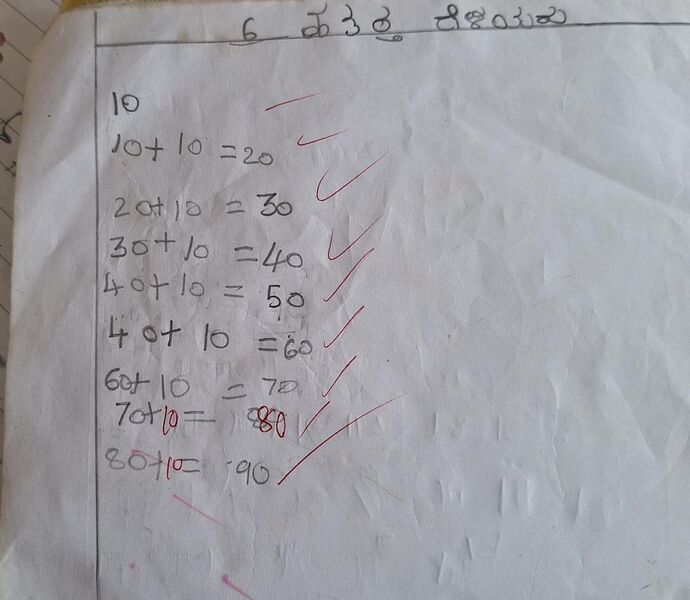 6
10
10+ 10 = 20
20+10 = 30
30+10 = 40
40+10 = 50
40+ 10 = 60
60+10 = 70
70+10= 80
80+10= 90